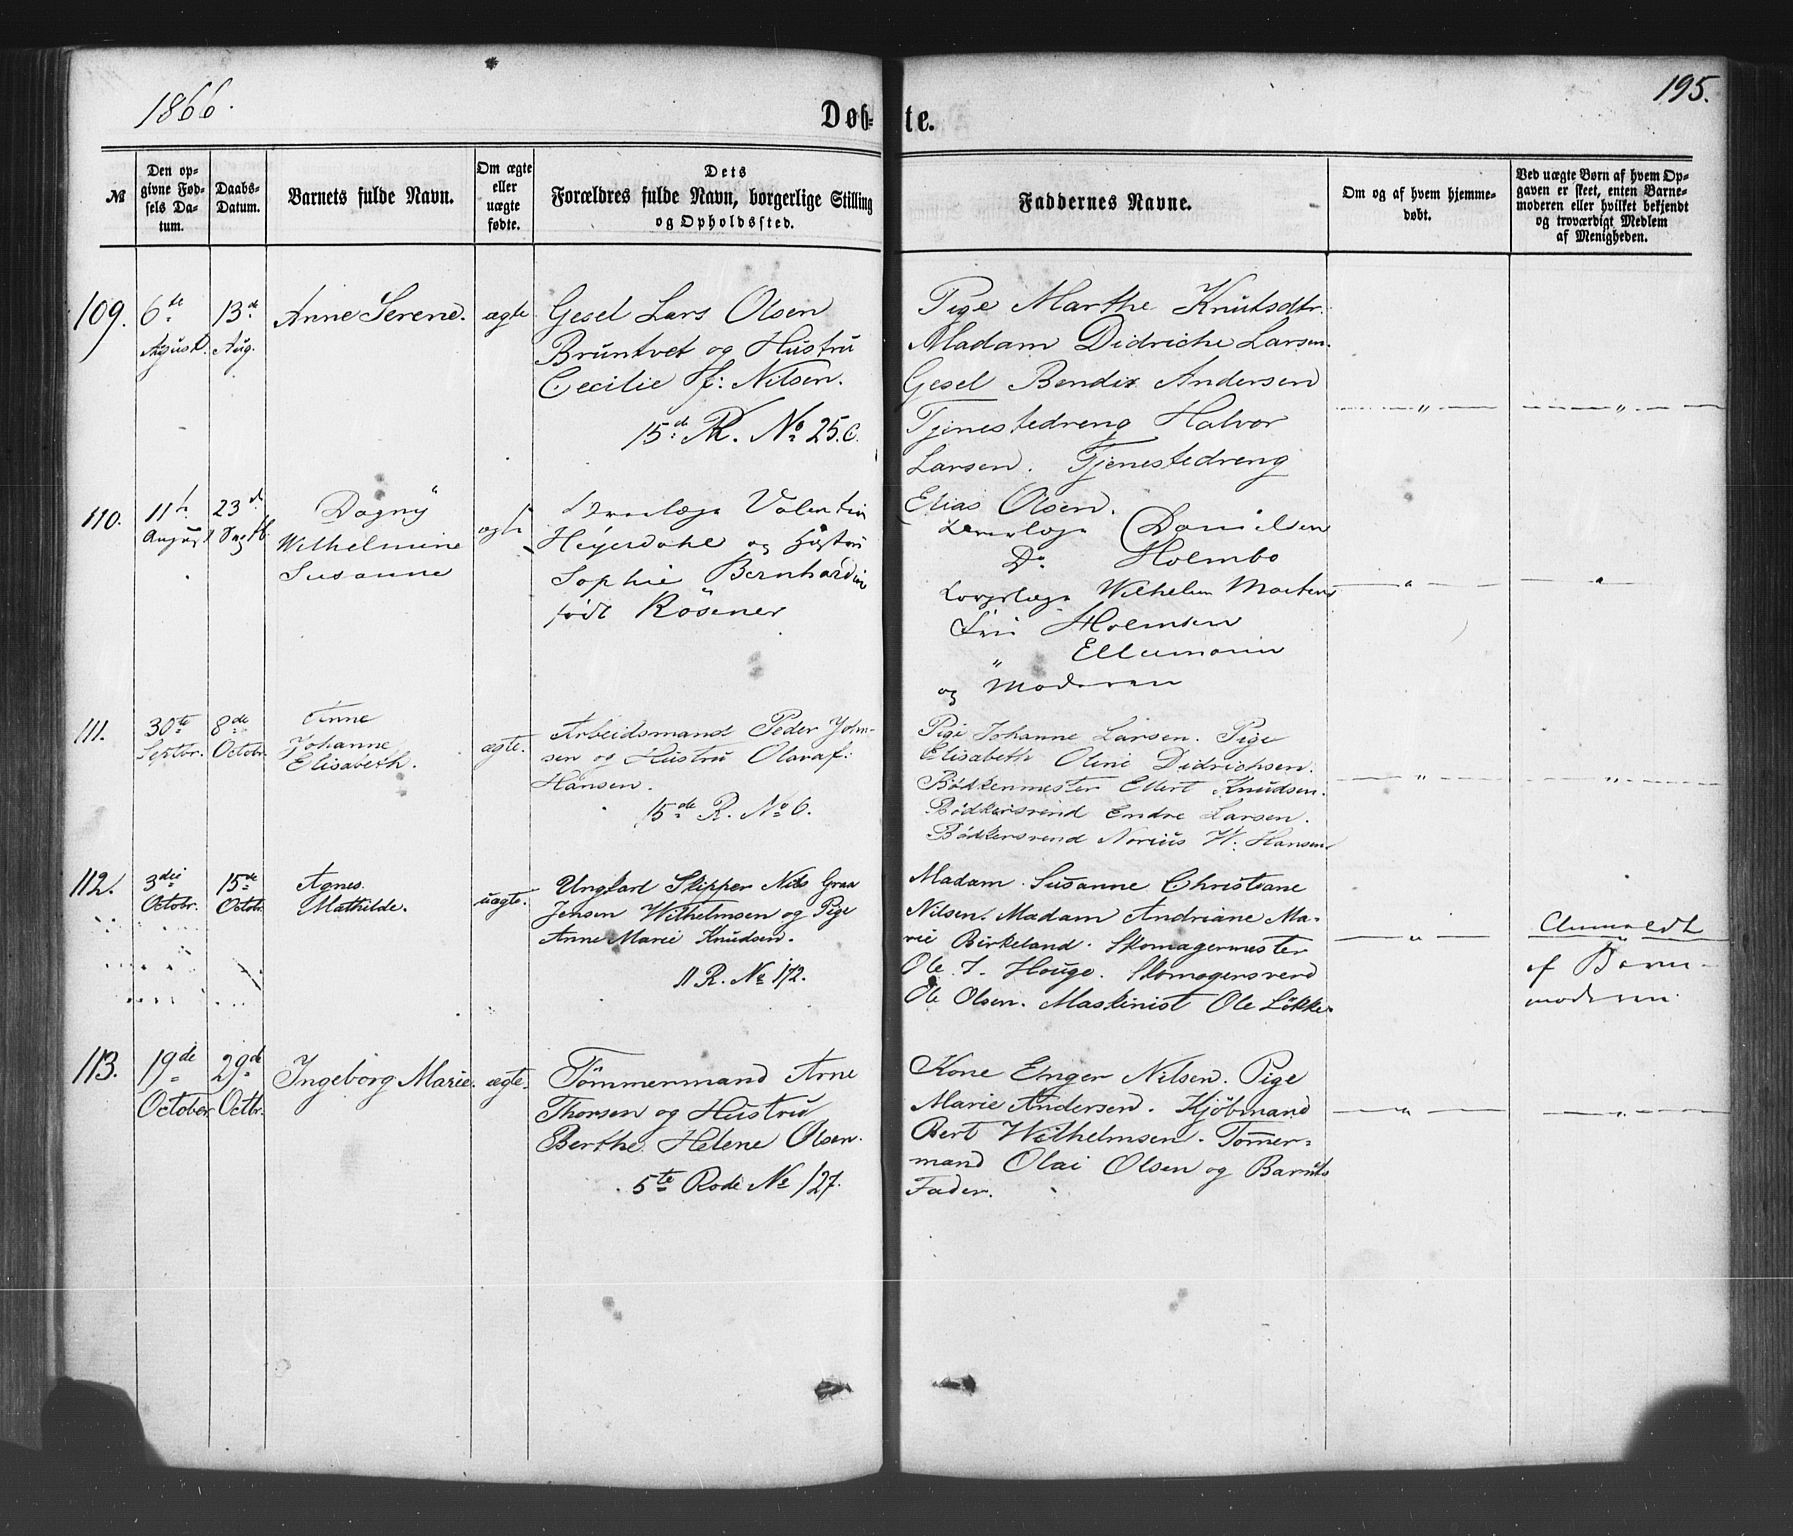 1866.
195.
Døb-te.
№
Den op-
givne Fød-
sels Da-
tum.
Daabs-
Datum.
Barnets fulde Navn.
Om ægte
eller
uægte
fødte.
Dets
Forældres fulde Navn, borgerlige Stilling
og Opholdssted.
Faddernes Navne.
Om og af hvem hjemme-
døbt.
Ved uægte Børn af hvem Op-
gaven er skeet, enten Barne-
moderen eller hvilket bekjendt
og troværdigt Medlem
af Menigheden.
109.
6te
August.
13de
Aug.
Anne Serene.
ægte
Gesel Lars Olsen
Bruntvet og Hustru
Cecilie f: Nilsen.
15de R. No 25.c.
Pige Marthe Knutsdtr.
Madam Didriche Larsen.
Gesel Bendix Andersen
Tjenestedreng Halvor
Larsen. Tjenestedreng
Elias Olsen.
110.
11te
August
23de
Dagny
Wilhelmine
Susanne
ægte
Valentin
Heyerdahl og Hustru
Sophie Bernhardine
født Rösener
Danielsen
Do Holmbo
Wilhelm
Holmsen
"
og Moderen
111.
30te
Septbr.
8de
Octobr.
Anne
Johanne
Elisabeth.
ægte.
Arbeidsmand Peder John-
sen og Hustru Olava f:
Hansen.
15de R. No 6.
Pige Johanne Larsen. Pige
Elisabeth Oline Didrichsen.
Bödkermester Ellert Knudsen.
Bödkersvend Endre Larsen.
Bödkersvend Norius W. Hansen.
112.
3die
Octobr.
15de
Octobr.
Agnes
Mathilde.
uægte.
Ungkarl Skipper Nils Graa
Jensen Wilhelmsen og Pige
Anne Marie Knudsen.
11 R. No 172.
Madam Susanne Christiane
Nilsen. Madam Andriane Ma-
rie Birkeland. Skomagermester
Ole J. Houge. Skomagersvend
Ole Olsen. Maskinist Ole Lökke.
Anmeldt
af Barne-
moderen.
113.
19de
October
29de
Octbr.
Ingeborg Marie.
ægte.
Tömmermand Arne
Thorsen og Hustru
Berthe Helene Olsen.
5te Rode No 127.
Kone Enger Nilsen. Pige
Marie Andersen. Kjöbmand
Bert Wilhelmsen. Tömer-
mand Olai Olsen og Barnets
Fader.